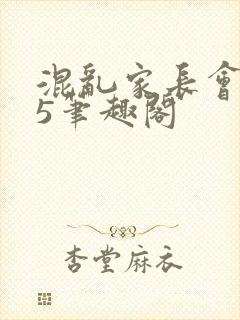 混亂家長會
5筆趣閣
杏堂麻衣